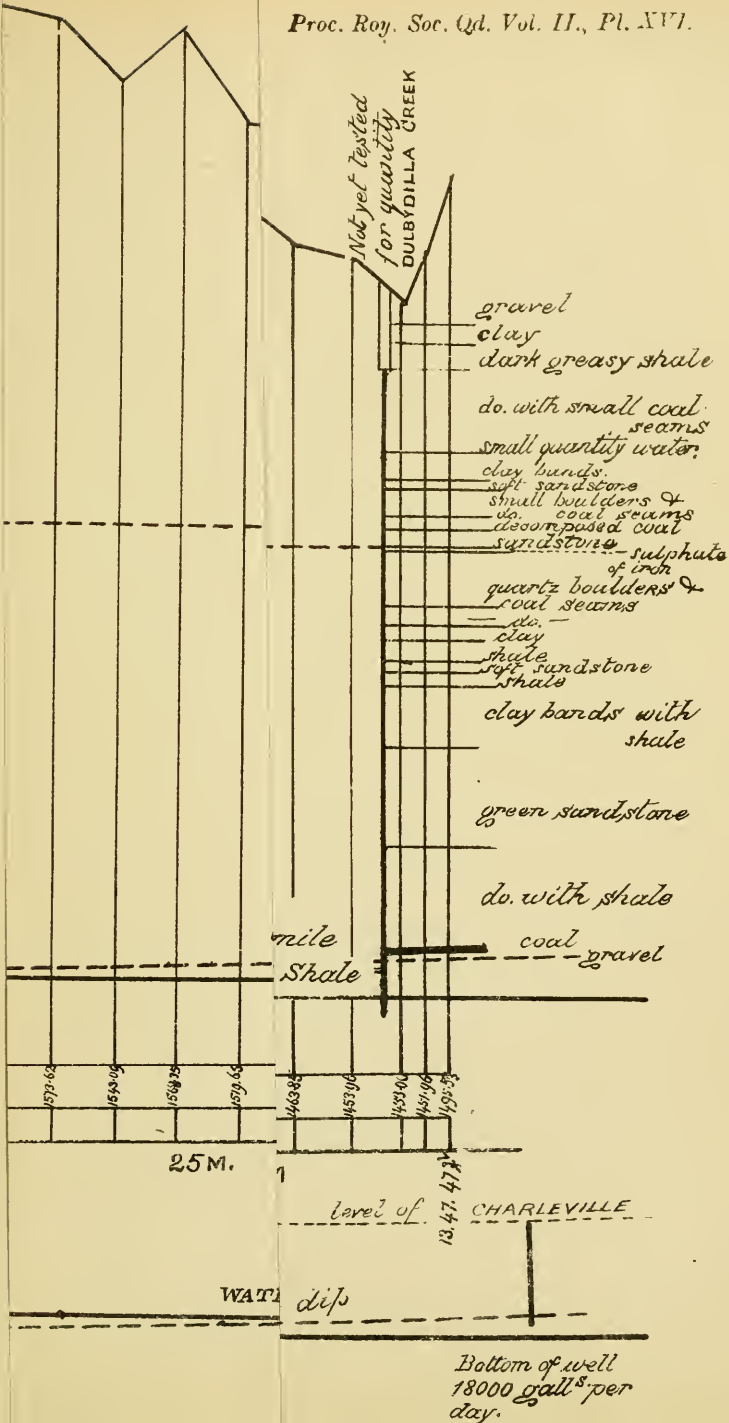 Proc. Roy. Soc. Qd. Vol. II., Pl. XVI.
Not yet tested
for quantity
DULBYDILLA CREEK
gravel
clay
dark greasy shale
do. with small coal
seams
small quantity water.
clay bands.
soft sandstone
small boulders &
do. coal seams
decomposed coal
sandstone
sulphate
of iron
quartz boulders &
coal seams
— do. —
clay
shale
soft sandstone
shale
clay bands with
shale
green sandstone
do. with shale
mile
coal
gravel
Shale
1573.62
1463.85
1453.96
1451.96
25 M.
level of CHARLEVILLE
dip
Bottom of well
18000 galls per
day.